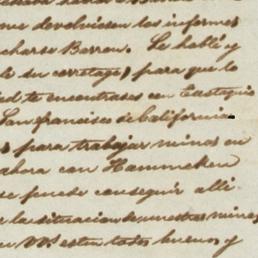 me devolviesen los informes
charse Barron. Le hablé y
le su corretage, para que lo
d te encontrases con Eustaquio
San francisco de California
para trabajar minas en
ahora con Hammeken
se puede conseguir alli
e la situacion de nuestras minas
en VVs esten todos buenos y